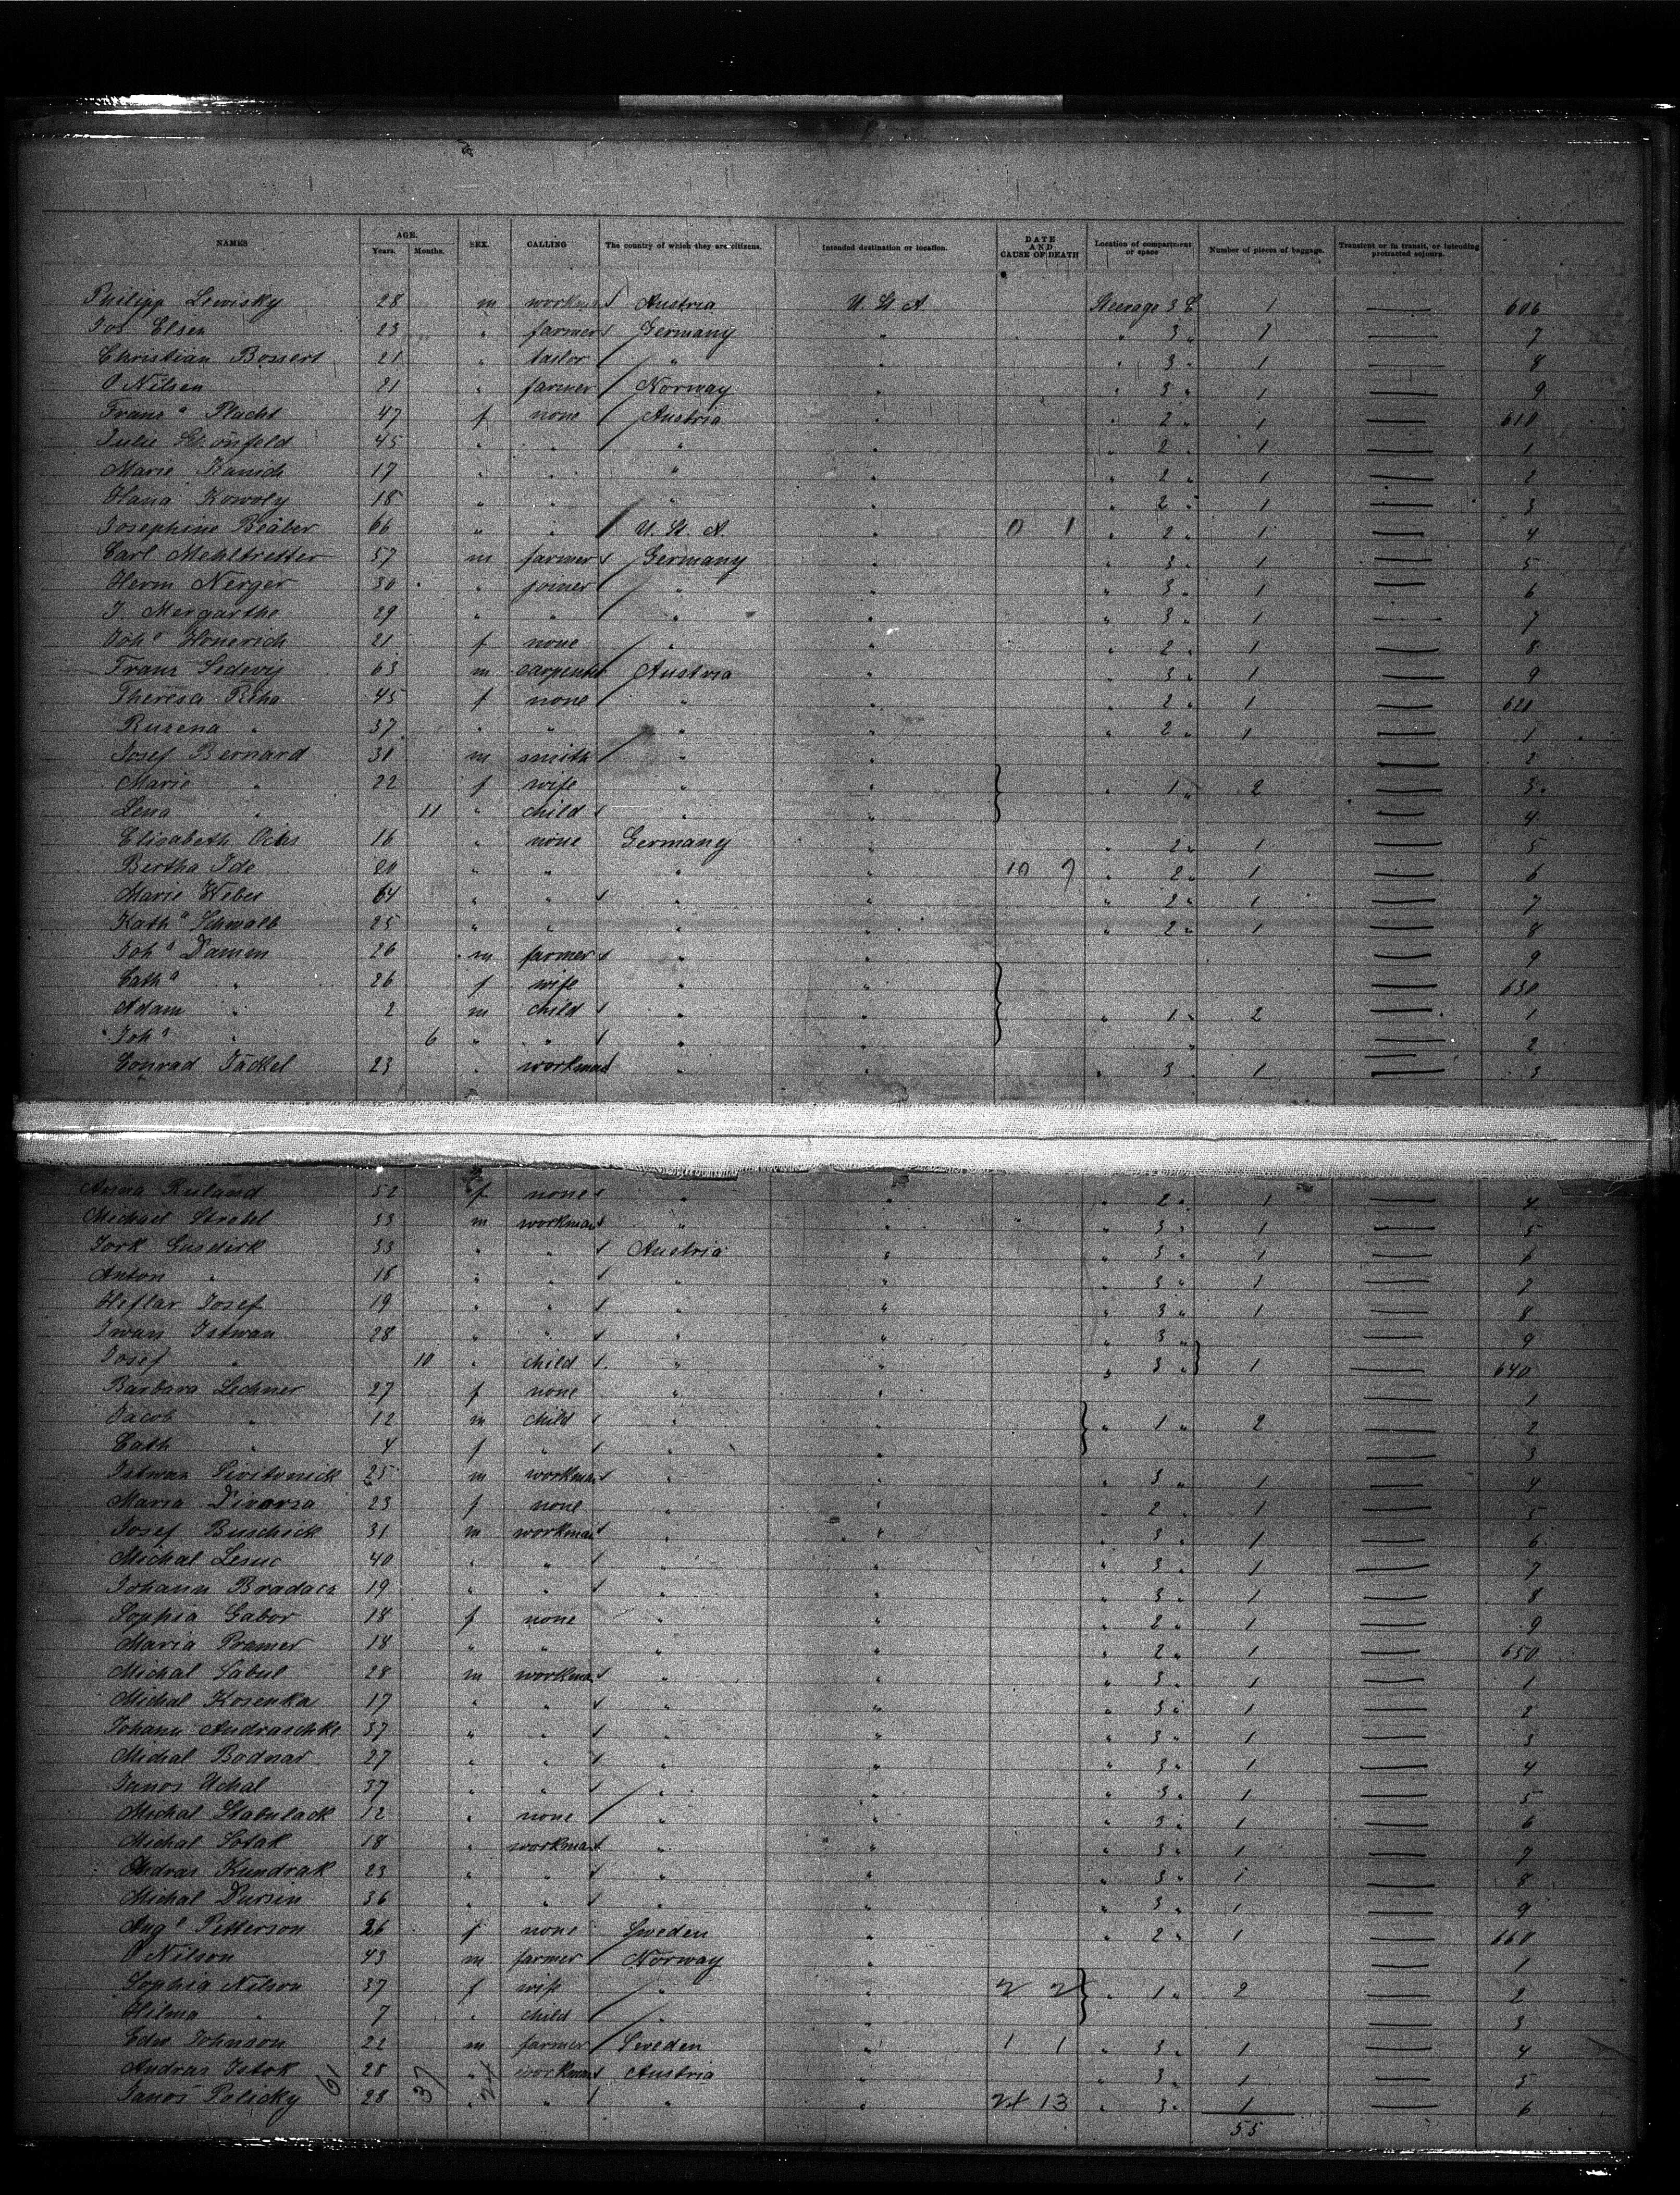 NAMES AGE. Years. Months. SEX. CALLING The country of which they are citizens. Intended destination or location. DATE AND CAUSE OF DEATH Location of compartment or space Number of pieces of baggage. Transient or in transit, or intending protracted sojourn.
Philipp Lewisky 28 m workman Austria U. St. A. Steerage 3 C 1 — 606
Jos Elsen 23 " farmer Germany " " 3 " 1 — 7
Christian Bossert 21 " tailor " " " 3 " 1 — 8
O Nilsen 21 " farmer Norway " 3 " 1 — 9
Franz a Placht 47 f none Austria " " 2 " 1 — 610
Julie Schönfeld 45 " " " " " 2 " 1 — 1
Marie Kanich 17 " " " " " 2 " 1 — 2
Hana Kowoly 18 " " " " " 2 " 1 — 3
Josephine 66 " " U. St. A. " 0 1 " 2 " 1 — 4
Carl Mehltretter 57 m farmer Germany " " 3 " 1 — 5
Herm Nerger 30 " joiner " " " 3 " 1 — 6
J. Mergarthe 29 " " " " " 3 " 1 — 7
Joh a Honerich 21 f none " " " 2 " 1 — 8
Franz Sedivy 63 m carpenter Austria " " 3 " 1 — 9
Theresa Riha 45 f none " " " 2 " 1 — 620
Ruzena " 37 " " " " " 2 " 1 — 1
Josef Bernard 31 m smith " " — 2
Marie " 22 f wife " " " 1 " 2 — 3
Lena " 11 " child " " — 4
Elisabeth Ochs 16 " none Germany " " 2 " 1 — 5
Bertha Ide 20 " " " " 10 7 " 2 " 1 — 6
Marie Weber 64 " " " " " 2 " 1 — 7
Kath a Schwalb 25 " " " " " 2 " 1 — 8
Joh s Damm 26 m farmer " " — 9
Cath a " 26 f wife " " — 630
Adam " 2 m child " " " 1 " 2 — 1
Joh s " 6 " " " " " — 2
Conrad Jäckel 23 " workman " " " 3 " 1 — 3
Anna Ruland 52 f none " " " 2 " 1 — 4
Michael Strobel 33 m workman " " " 3 " 1 — 5
Jork Gusdirk 33 " " Austria " " 3 " 1 — 6
Anton " 18 " " " " " 3 " 1 — 7
Heflar Josef 19 " " " " " 3 " 1 — 8
Iwan Istwan 28 " " " " " 3 " — 9
Josef " 10 " child " " " 3 " 1 — 640
Barbara Lechner 27 f none " " — 1
Jacob " 12 m child " " " 1 " 2 — 2
Cath " 4 f " " " — 3
Istwan 25 m workman " " " 3 " 1 — 4
Maria 23 f none " " " 2 " 1 — 5
Josef Buschick 31 m workman " " " 3 " 1 — 6
Michal Lesuc 40 " " " " " 3 " 1 — 7
Johann Bradacz 19 " " " " " 3 " 1 — 8
Sophia Gabor 18 f none " " " 2 " 1 — 9
Maria Pramer 18 " " " " " 2 " 1 — 650
Michal Sabul 28 m workman " " " 3 " 1 — 1
Michal Kosenka 17 " " " " " 3 " 1 — 2
Johann Andraschke 37 " " " " " 3 " 1 — 3
Michal Bodnar 27 " " " " " 3 " 1 — 4
Janos Uchal 37 " " " " " 3 " 1 — 5
Michal Stabulack 12 " none " " " 3 " 1 — 6
Michal Sotak 18 " workman " " " 3 " 1 — 7
Andras Kundrak 23 " " " " " 3 " 1 — 8
Michal Dursin 36 " " " " " 3 " 1 — 9
Aug e Petterson 26 f none Sweden " " 2 " 1 — 660
O Nilson 43 m farmer Norway " — 1
Sophia Nilson 37 f wife " " 2 2 " 1 " 2 — 2
Hilma " 7 " child " " — 3
Edw Johnson 22 m farmer Sweden " 1 1 " 3 " 1 — 4
Andras Istok 28 " workman Austria " " 3 " 1 — 5
Janos Policky 28 " " " " 24 13 " 3 " 1 — 6
61 37 24 55